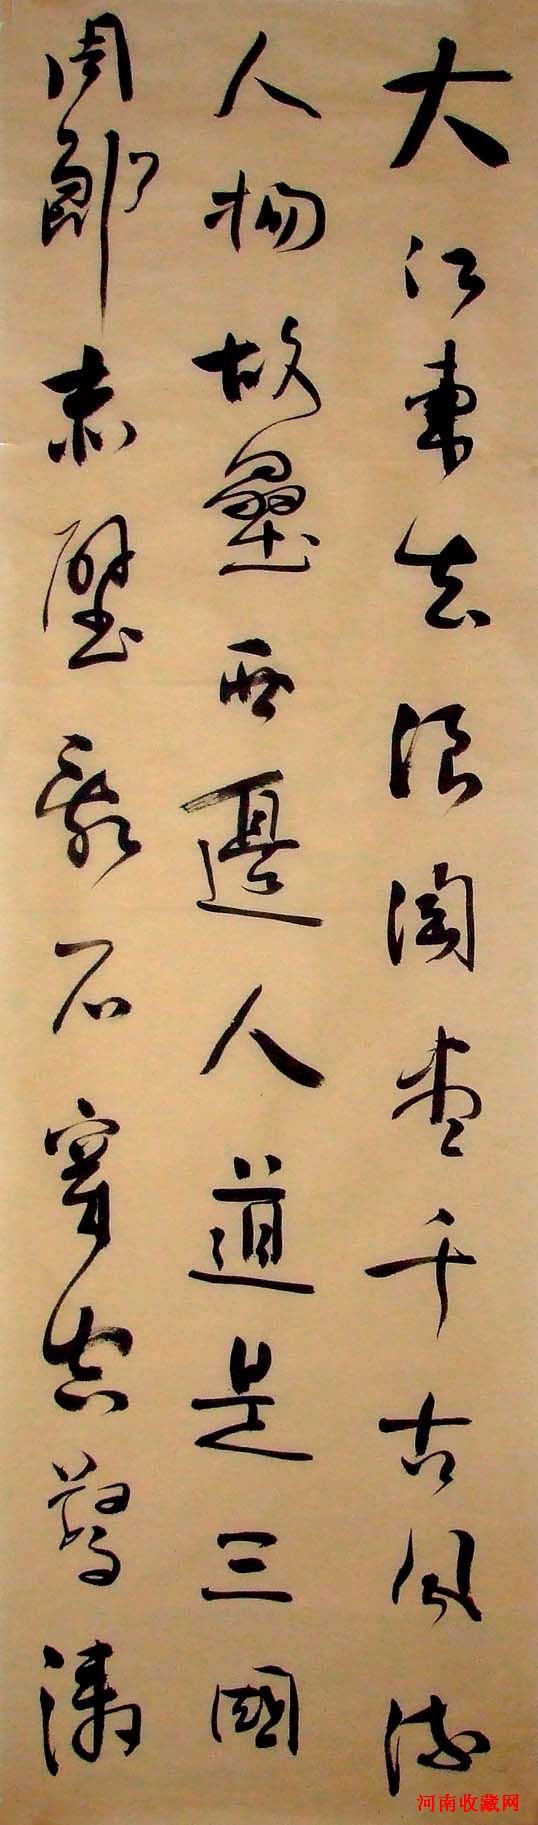 大江東去浪淘盡千古風流
人物故壘西邊人道是三國
周郎赤壁亂石穿空驚濤
河南收藏网